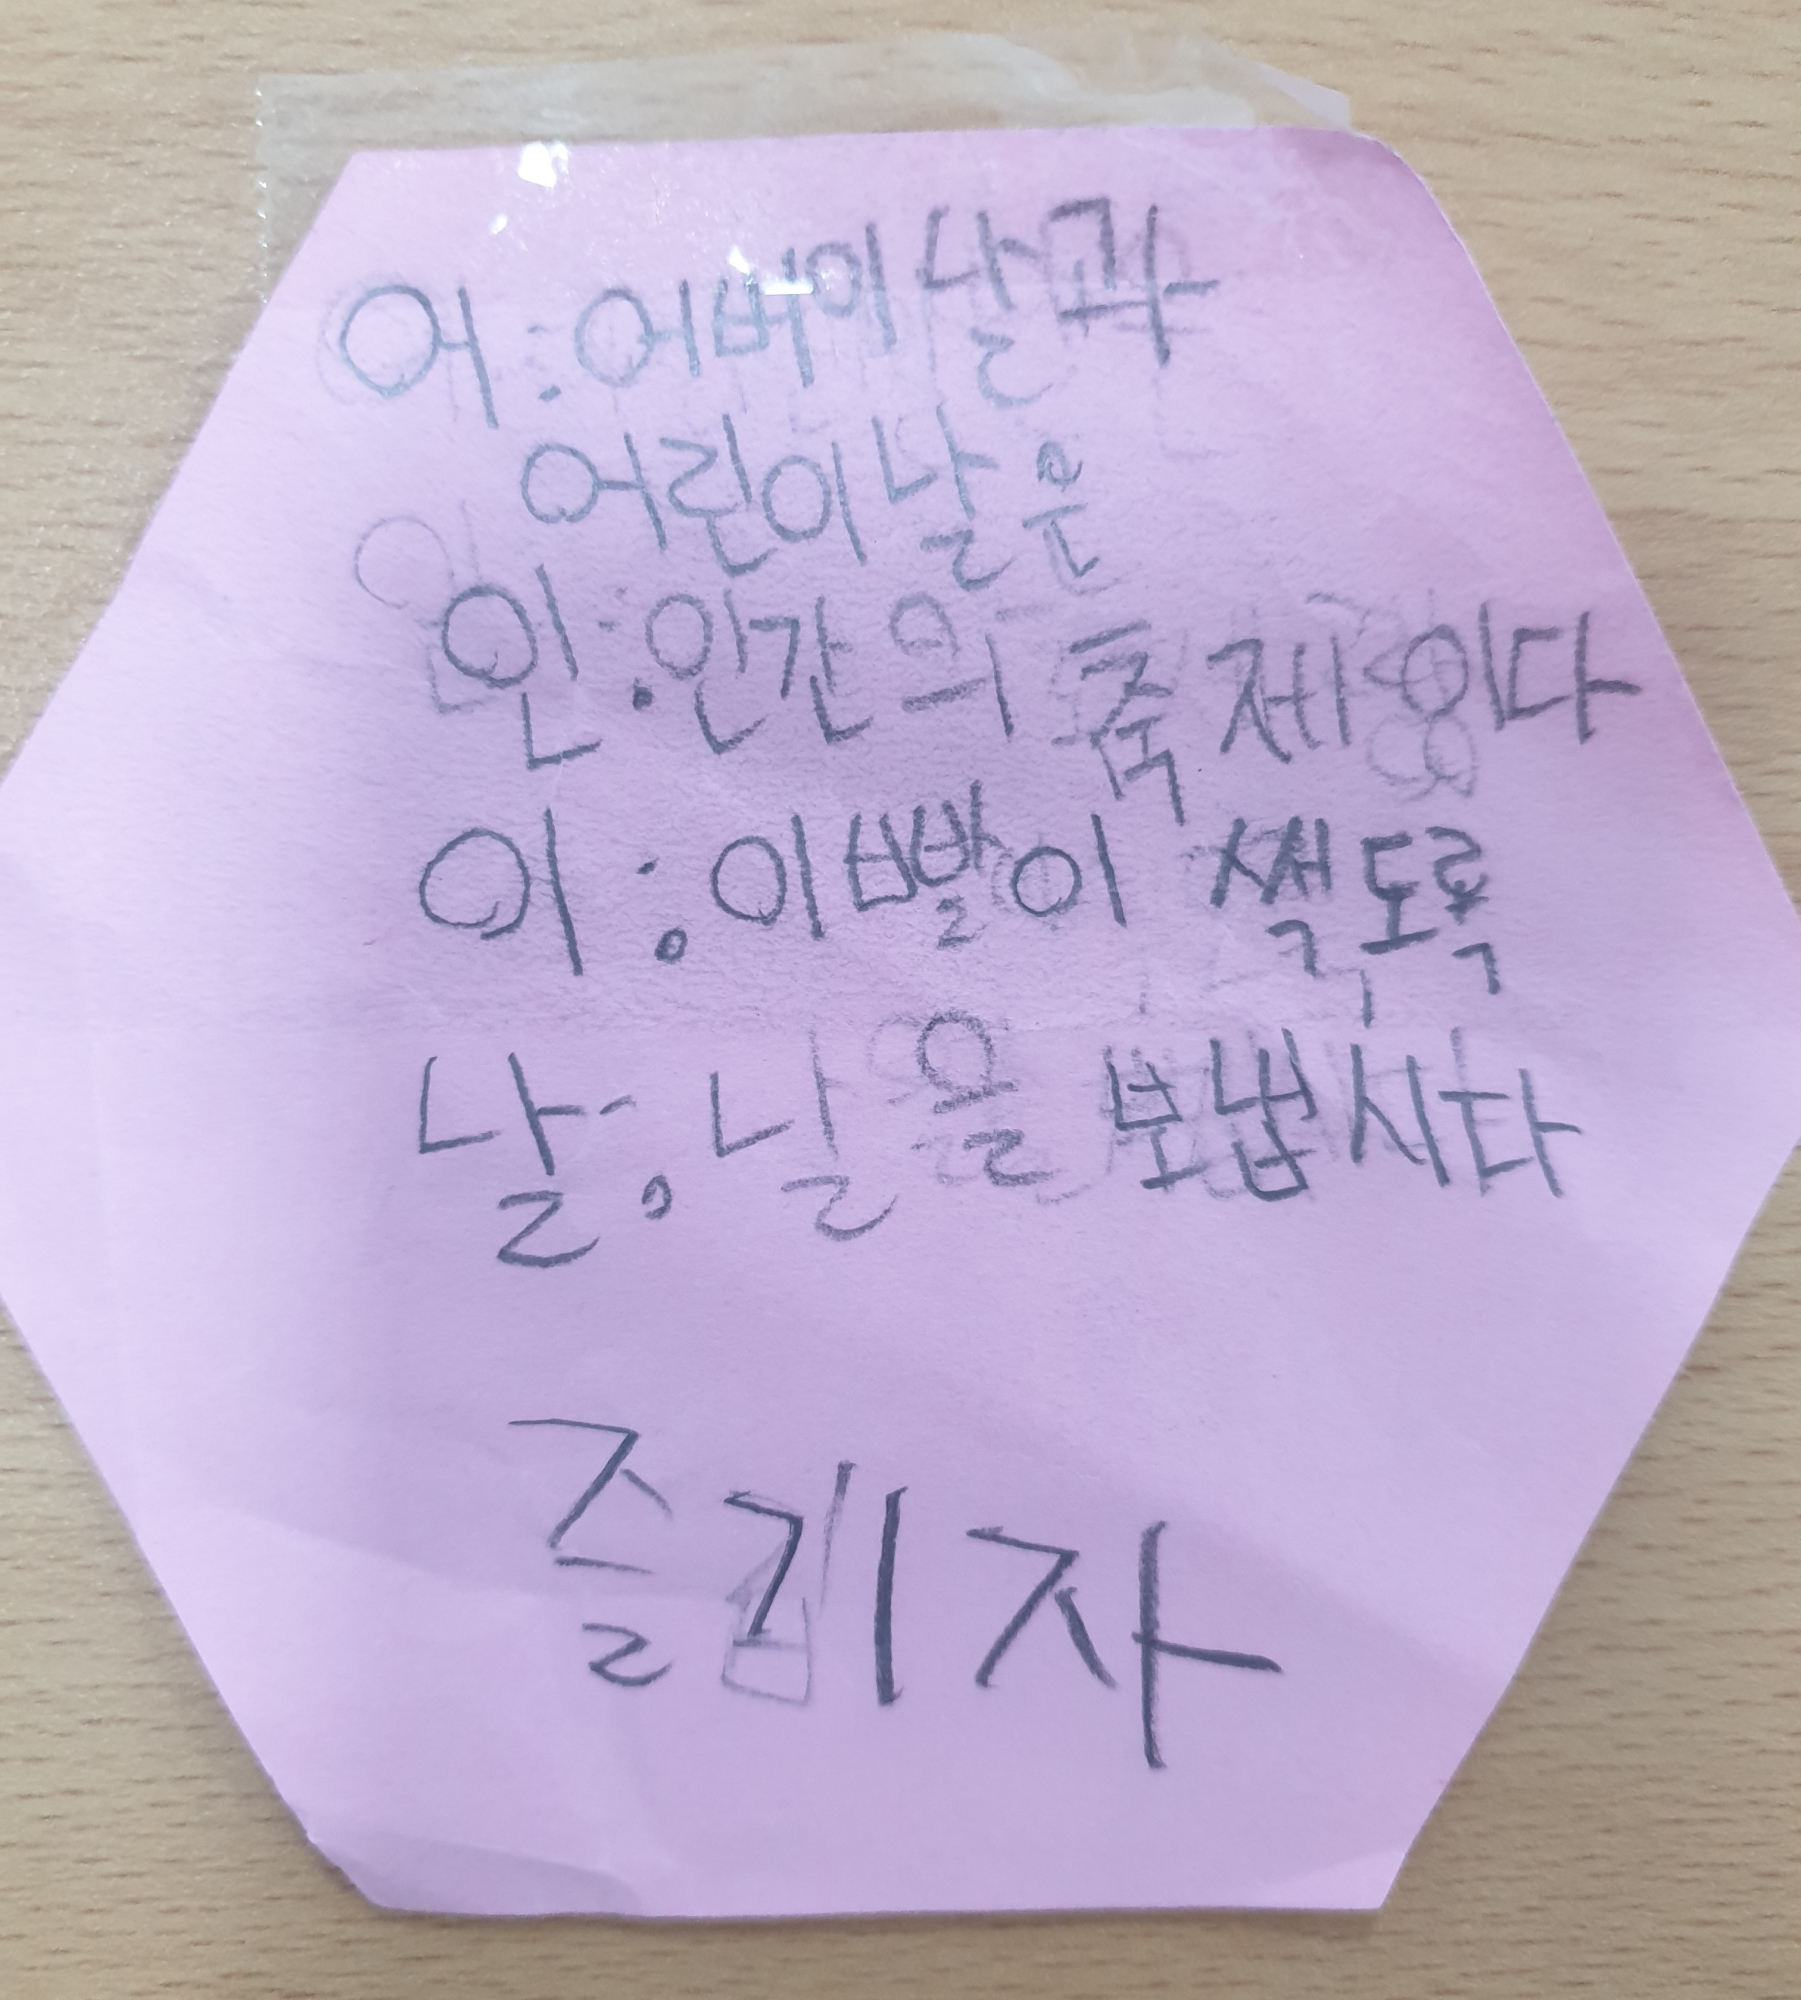 어:어버이날과
어린이날은
인:인간의 축제이다
이:이빨이 썩도록
날:날을 보냅시다
즐기자